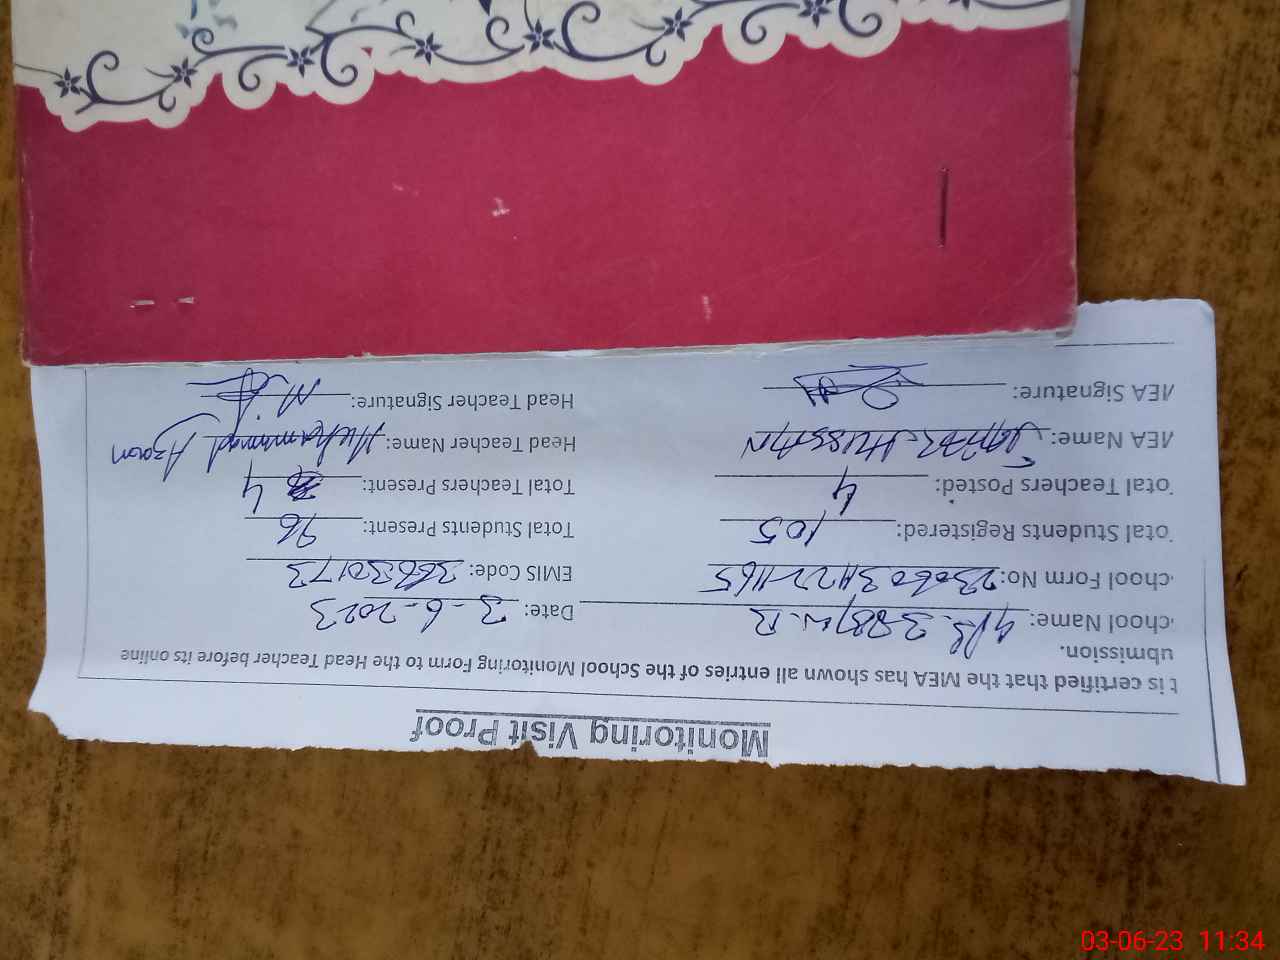 Monitoring Visit Proof
t is certified that the MEA has shown all entries of the School Monitoring Form to the Head Teacher before its online
ubmission.
chool Name: Date: 3-6-2023
chool Form No: EMIS Code: 36630173
otal Students Registered: 105 Total Students Present: 96
otal Teachers Posted: 4 Total Teachers Present: 4
MEA Name: HUSSAIN Head Teacher Name: Muhammad Azam
MEA Signature: Head Teacher Signature:
03-06-23 11:34